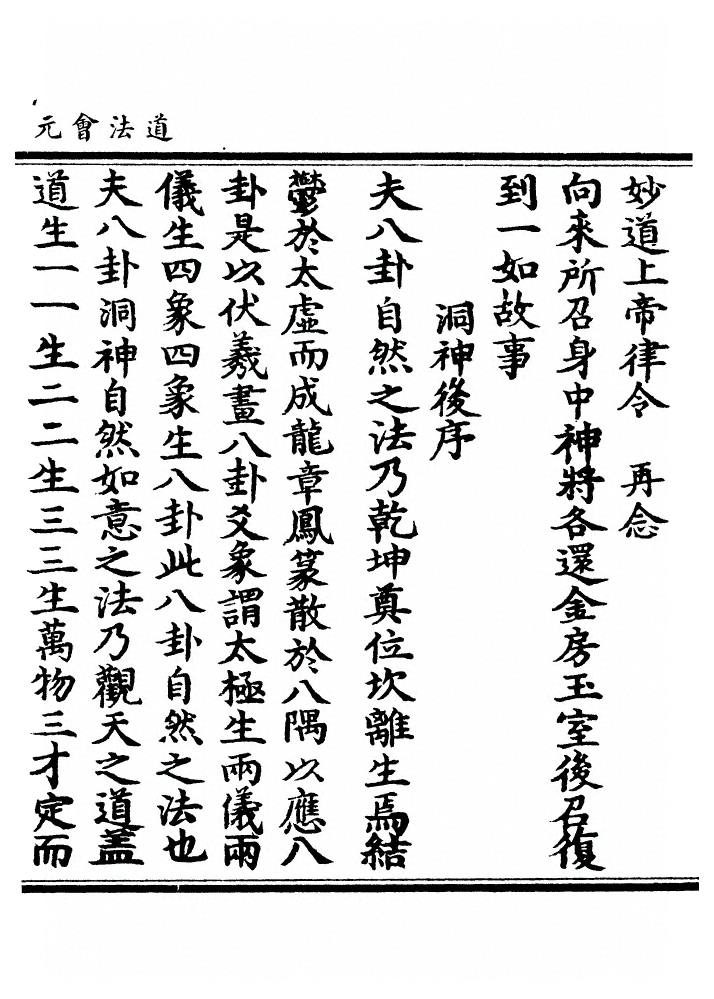 道法會元
妙道上帝律令　再念
向來所召身中神將各還金房玉室後召復
到一如故事
洞神後序
夫八卦自然之法乃乾坤奠位坎離生焉結
鬱於太虛而成龍章鳳篆散於八隅以應八
卦是以伏羲畫八卦爻象謂太極生兩儀兩
儀生四象四象生八卦此八卦自然之法也
夫八卦洞神自然如意之法乃觀天之道蓋
道生一一生二二生三三生萬物三才定而